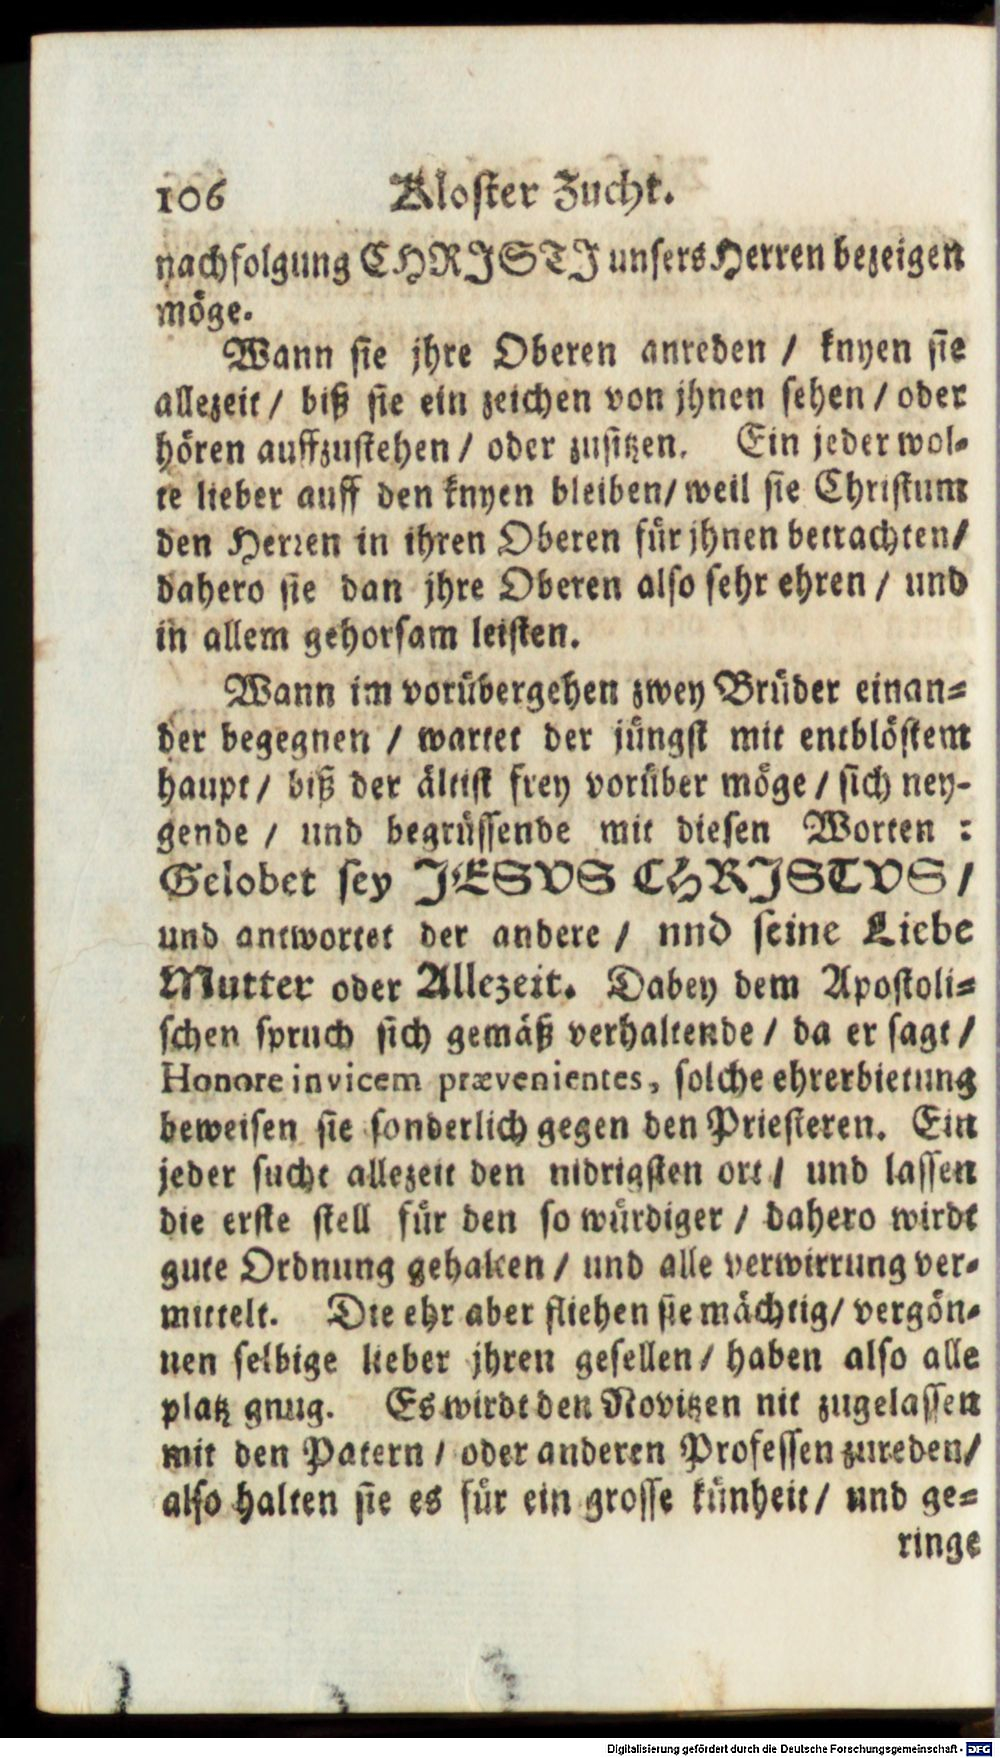 106 Kloster Zucht.
nachfolgung CHRISTI unsers Herren bezeigen
möge.
Wann sie jhre Oberen anreden / knyen sie
allezeit / biß sie ein zeichen von jhnen sehen / oder
hören auffzustehen / oder zusitzen. Ein jeder wol-
te lieber auff den knyen bleiben / weil sie Christum
den Herren in ihren Oberen für jhnen betrachten /
dahero sie dan jhre Oberen also sehr ehren / und
in allem gehorsam leisten.
Wann im vorübergehen zwey Brüder einan-
der begegnen / wartet der jüngst mit entblöstem
haupt / biß der ältist frey vorüber möge / sich ney-
gende / und begrüssende mit diesen Worten :
Gelobet sey JESVS CHRJSTVS /
und antwortet der andere / nnd seine Liebe
Mutter oder Allezeit. Dabey dem Apostoli-
schen spruch sich gemäß verhaltende / da er sagt /
Honore invicem prævenientes, solche ehrerbietung
beweisen sie sonderlich gegen den Priesteren. Ein
jeder sucht allezeit den nidrigsten ort / und lassen
die erste stell für den so würdiger / dahero wirdt
gute Ordnung gehalten / und alle verwirrung ver-
mittelt. Die ehr aber fliehen sie mächtig / vergön-
nen selbige lieber jhren gesellen / haben also alle
platz gnug. Es wirdt den Novitzen nit zugelassen
mit den Patern / oder anderen Professen zureden /
also halten sie es für ein grosse künheit / und ge-
ringe
Digitalisierung gefördert durch die Deutsche Forschungsgemeinschaft - DFG